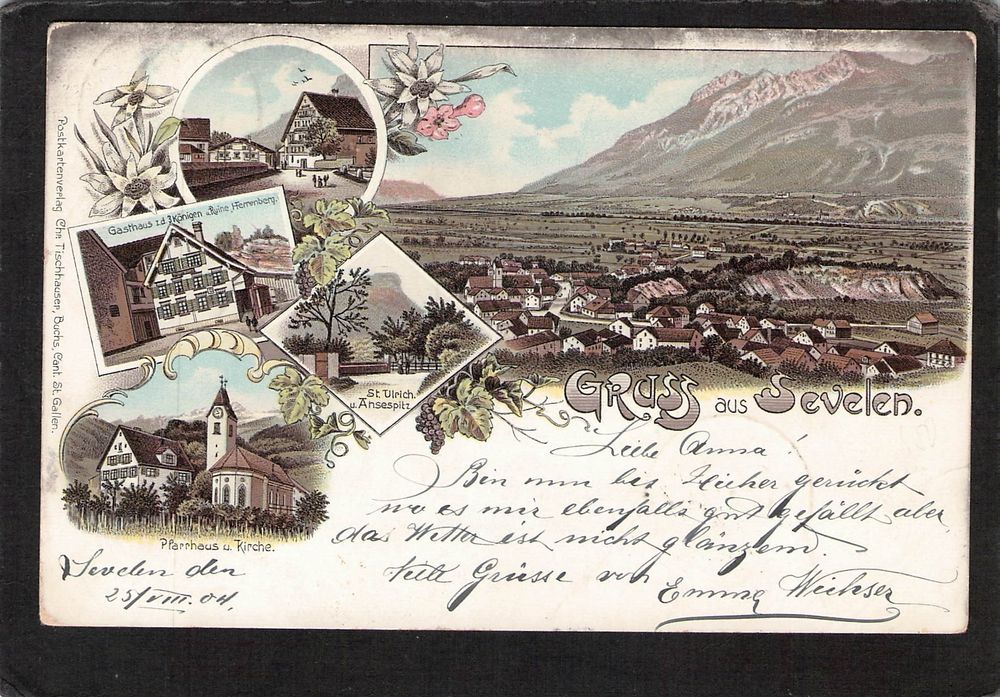 Postkartenverlag Chr. Tischhauser, Buchs, Cant. St. Gallen.
Gasthaus z.d. 3 Königen u. Ruine „Herrenberg.
St. Ulrich.
u. Ansespitz.
Pfarrhaus u. Kirche.
Gruss aus Sevelen.
Liebe Anna!
Bin nun bis hieher gerückt
wo es mir ebenfalls gut gefällt aber
das Wetter ist nicht glänzend.
Viele Grüsse von
Emma
Sevelen den
25/VIII. 04.